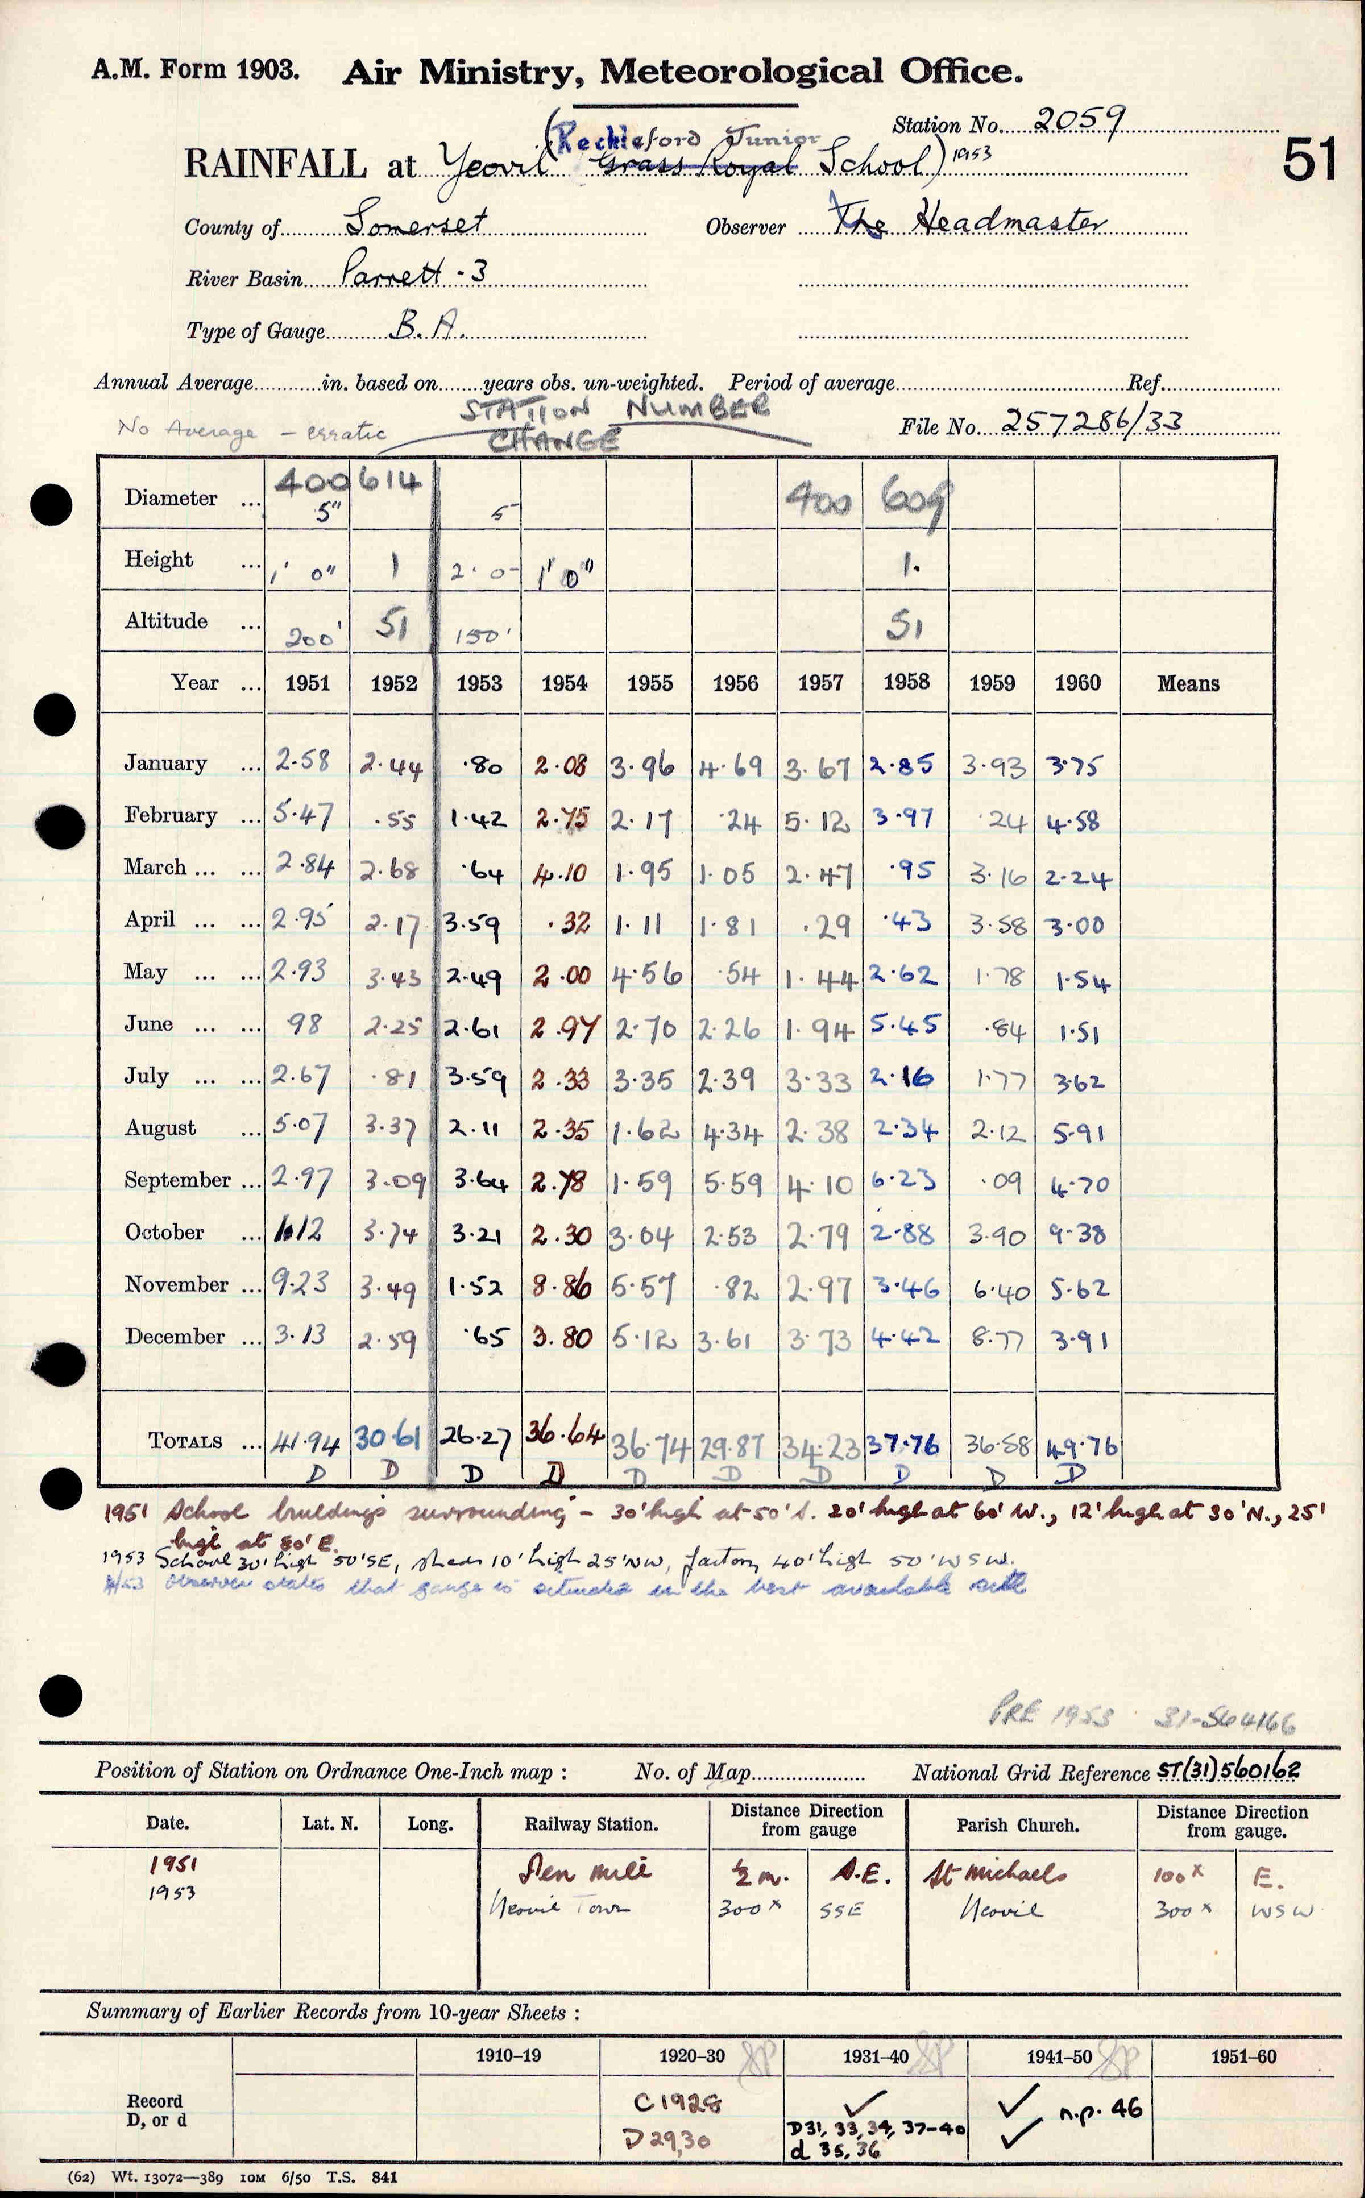 A.M. Form 1903. Air Ministry, Meteorological Office.
Station No. 2059
51
(Reckleford Junior
RAINFALL at Yeovil Grass Royal School) 1953
County of Somerset Observer The Headmaster
River Basin Parrett - 3
Type of Gauge B.A.
Annual Average in. based on years obs. un-weighted. Period of average Ref.
No Average - erratic STATION NUMBER CHANGE File No. 257286/33
400 614 400 609
Diameter ... 5" 5
Height ... 1' 0" 1 2'0- 1' 0" 1.
Altitude ... 200' 51 150' 51
Year ... 1951 1952 1953 1954 1955 1956 1957 1958 1959 1960 Means
January ... 2.58 2.44 .80 2.08 3.96 4.69 3.67 2.85 3.93 3.75
February ... 5.47 .55 1.42 2.75 2.17 .24 5.12 3.97 .24 4.58
March ... ... 2.84 2.68 .64 4.10 1.95 1.05 2.47 .95 3.16 2.24
April ... ... 2.95 2.17 3.59 .32 1.11 1.81 .29 .43 3.58 3.00
May ... ... 2.93 3.43 2.49 2.00 4.56 .54 1.44 2.62 1.78 1.54
June ... ... 98 2.25 2.61 2.97 2.70 2.26 1.94 5.45 .84 1.51
July ... ... 2.67 .81 3.59 2.33 3.35 2.39 3.33 2.16 1.77 3.62
August ... 5.07 3.37 2.11 2.35 1.62 4.34 2.38 2.34 2.12 5.91
September ... 2.97 3.09 3.64 2.78 1.59 5.59 4.10 6.23 .09 4.70
October ... 1.12 3.74 3.21 2.30 3.04 2.53 2.79 2.88 3.90 9.38
November ... 9.23 3.49 1.52 8.86 5.57 .82 2.97 3.46 6.40 5.62
December ... 3.13 2.59 .65 3.80 5.12 3.61 3.73 4.42 8.77 3.91
TOTALS ... 41.94 30.61 26.27 36.64 36.74 29.87 34.23 37.76 36.58 49.76
D D D D D D D D D D
1951 School buildings surrounding - 30' high at 50' S. 20' high at 60' W., 12' high at 30' N., 25'
high at 80' E.
1953 School 30' high 50' SE, sheds 10' high 25' NW, factory 40' high 50' WSW.
observer states that gauge is situated in the best available site
PRE 1953 31-564166
Position of Station on Ordnance One-Inch map : No. of Map National Grid Reference ST(31)560162
Date. Lat. N. Long. Railway Station. Distance Direction from gauge Parish Church. Distance Direction from gauge.
1951 Pen Mill ½ m. S.E. St Michaels 100x E.
1953 Yeovil Town 300x SSE Yeovil 300x WSW
Summary of Earlier Records from 10-year Sheets :
1910–19 1920–30 1931–40 1941–50 1951–60
Record D, or d
C 1928 ✓ ✓ n.p. 46
D 29,30 D31, 33, 34, 37-40 ✓
d 35, 36
(62) Wt. 13072—389 10M 6/50 T.S. 841